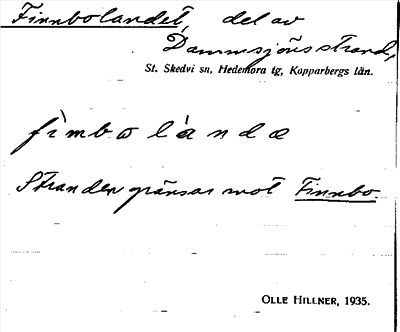 Finnbolandet, del av
Dammsjöns strand,
St. Skedvi sn, Hedemora tg, Kopparbergs län.
fìmbolànda
Stranden gränsar mot Finnbo.
OLLE HILLNER, 1935.